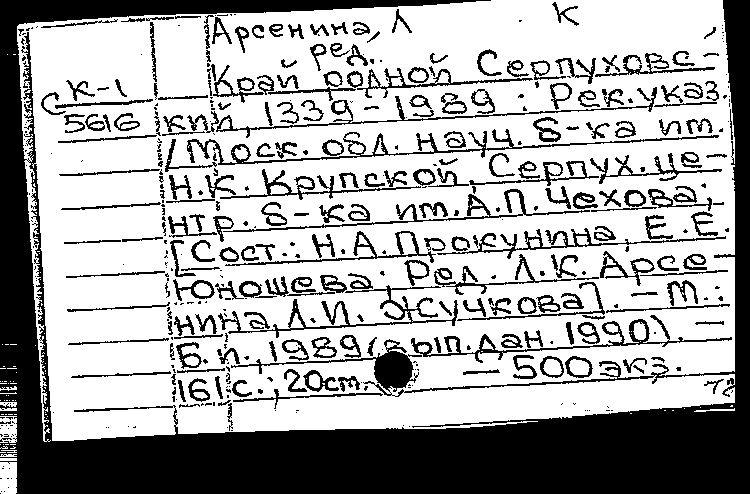 Арсенина, Л К
ред.
К-1 Край родной Серпуховс-
С 5616 кий, 1339-1989 : Рек. указ.
/Моск. обл. науч. б-ка им.
Н.К. Крупской, Серпух. це-
нтр. б-ка им. А.П. Чехова;
[Сост.: Н.А. Прокунина, Е.Е.
Юношева; Ред. Л.К. Арсе-
нина, Л.И. Жучкова]. - М.:
Б.и., 1989 (вып. дан. 1990). -
161 с.; 20 cm. - 500 экз.